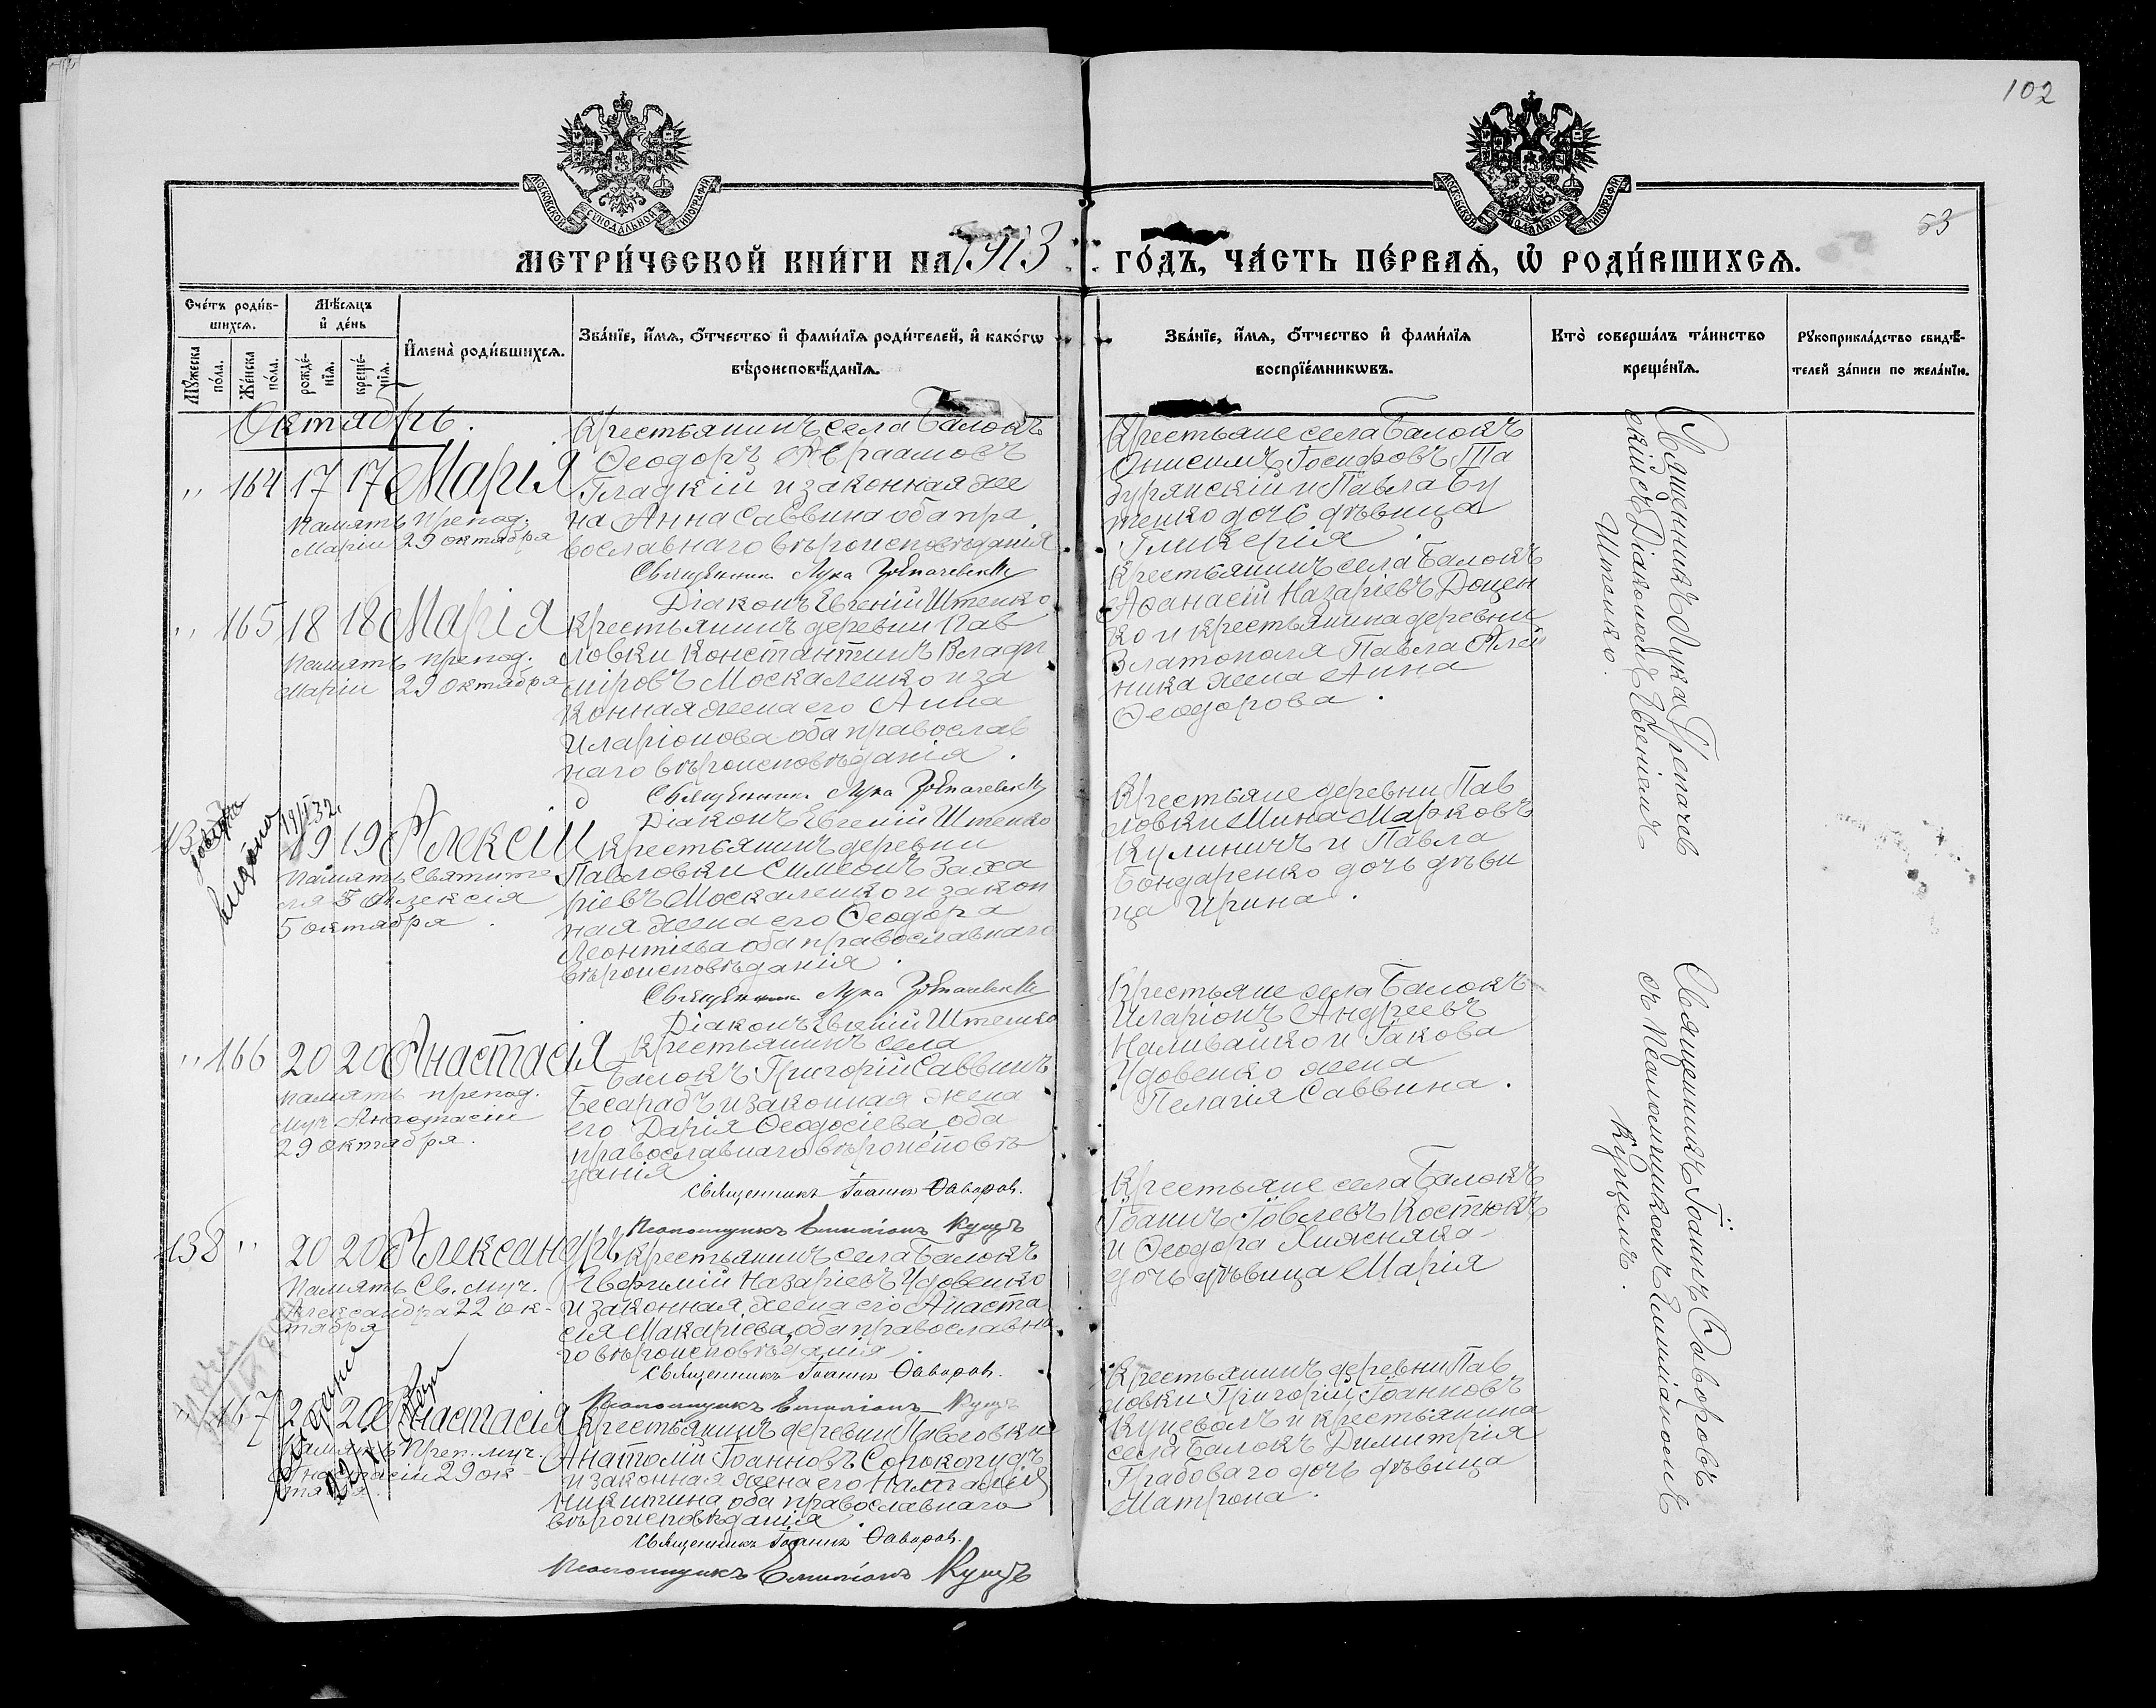 102
53
МОСКОВСКОЙ СУНОДАЛЬНОЙ ТИПОГРАФІИ
МОСКОВСКОЙ СУНОДАЛЬНОЙ ТИПОГРАФІИ
МЕТРИ́ЧЕСКОЙ КНИ́ГИ НА 1913 ГО́ДЪ, ЧА́СТЬ ПЕ́РВАѦ, Ѡ҆ РОДИ́ВШИХСѦ.
Сче́тъ роди́в-
шихсѧ.
Мѹ́жеска по́ла.
Же́нска по́ла.
Мѣ́сѧцъ
и҆ де́нь
рожде́-
нїѧ.
креще́-
нїѧ.
И҆мена̀ роди́вшихсѧ.
Зва́нїе, и҆́мѧ, о҆́тчество и҆ фами́лїѧ роди́телей, и҆ како́гѡ
вѣроисповѣ́данїѧ.
Зва́нїе, и҆́мѧ, о҆́тчество и҆ фами́лїѧ
воспрїе́мникѡвъ.
Кто̀ соверша́лъ та́инство
креще́нїѧ.
Рѹкоприкла́дство свидѣ́-
телей за́писи по жела́нїю.
Октябрь.
" 164 17 17 Марія
Память препод.
Маріи 29 октября
Крестьянинъ села Балокъ
Ѳеодоръ Авраамовъ
Гладкій и законная же
на Анна Саввина оба пра
вославнаго вѣроисповѣданія
Священникъ Лука
Діаконъ Евгеній Штепко
Крестьяне села Балокъ
Онисимъ Іосифовъ Та
бурянскій и Павла Бу
тенко дочь дѣвица
Гликерія.
Священникъ Лука
Діакономъ Евгеніемъ
Штепко.
" 165 18 18 Марія
Память препод.
Маріи 29 октября
Крестьянинъ деревни Пав
ловки Константинъ Влади
міровъ Москаленко и за
конная жена его Анна
Иларіонова оба православ
наго вѣроисповѣданія.
Священникъ Лука
Діаконъ Евгеній Штепко
Крестьянинъ села Балокъ
Аѳанасій Назаріевъ Доцен
ко и крестьянина деревни
Златополя Павла Алей
ника жена Анна
Ѳеодорова.
19 19 Алексій
Память Святите
ля Алексія
5 октября.
Крестьянинъ деревни
Павловки Симеонъ Заха
ріевъ Москаленко и закон
ная жена его Ѳеодора
Леонтіева оба православнаго
вѣроисповѣданія.
Священникъ Лука
Діаконъ Евгеній Штепко
Крестьяне деревни Пав
ловки Мина Марковъ
Кулиничъ и Павла
Бондаренко дочь дѣви
ца Ирина.
" 166 20 20 Анастасія
Память препод.
муч Анастасіи
29 октября.
Крестьянинъ села
Балокъ Григорій Саввинъ
Бесарабъ и законная жена
его Дарія Ѳеодосіева, оба
православнаго вѣроисповѣ
данія
Священникъ Іоаннъ Ѳаворовъ.
Псаломщикъ Емиліанъ Куцъ
Крестьяне села Балокъ
Иларіонъ Андреевъ
Наливайко и Іакова
Удовенко жена
Пелагія Саввина.
Священникъ Іоаннъ Ѳаворовъ
съ Псаломщикомъ Емиліаномъ
Куцемъ.
138 " 20 20 Александръ
Память Св. муч.
Александра 22 ок-
тября
Крестьянинъ села Балокъ
Евфимій Назаріевъ Удовенко
и законная жена его Анаста
сія Макаріева, оба православна
го вѣроисповѣданія.
Священникъ Іоаннъ Ѳаворовъ.
Псаломщикъ Емиліанъ Куцъ
Крестьяне села Балокъ
Іоаннъ Іовлевъ Костюкъ
и Ѳеодора Хижняка
дочь дѣвица Марія
" 167 20 20 Анастасія
Память Преп. муч.
Анастасіи 29 ок-
тября.
Крестьянинъ деревни Павловки
Анатолій Іоанновъ Сорокопудъ
и законная жена его Наталія
Никитина оба православнаго
вѣроисповѣданія.
Священникъ Іоаннъ Ѳаворовъ.
Псаломщикъ Емиліанъ Куцъ
Крестьянинъ деревни Пав
ловки Григорій Іоанновъ
и крестьянина
села Балокъ Димитрія
Грабоваго дочь дѣвица
Матрона.